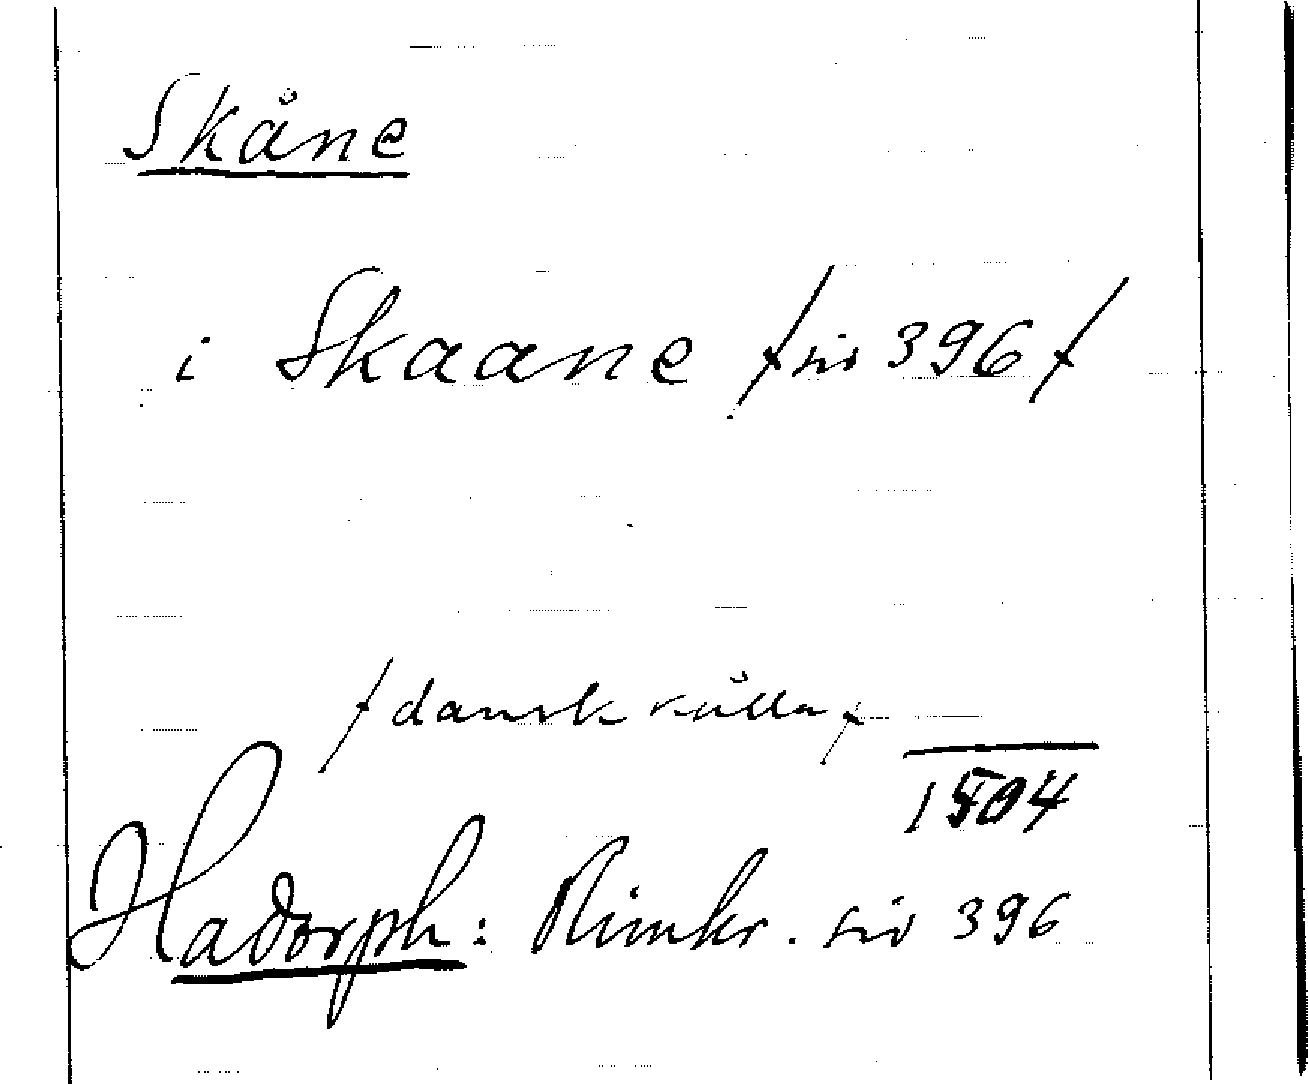 Skåne
i Skaane /sid 396/
/dansk källa/
1504
Hadorph: Rimkr. sid 396